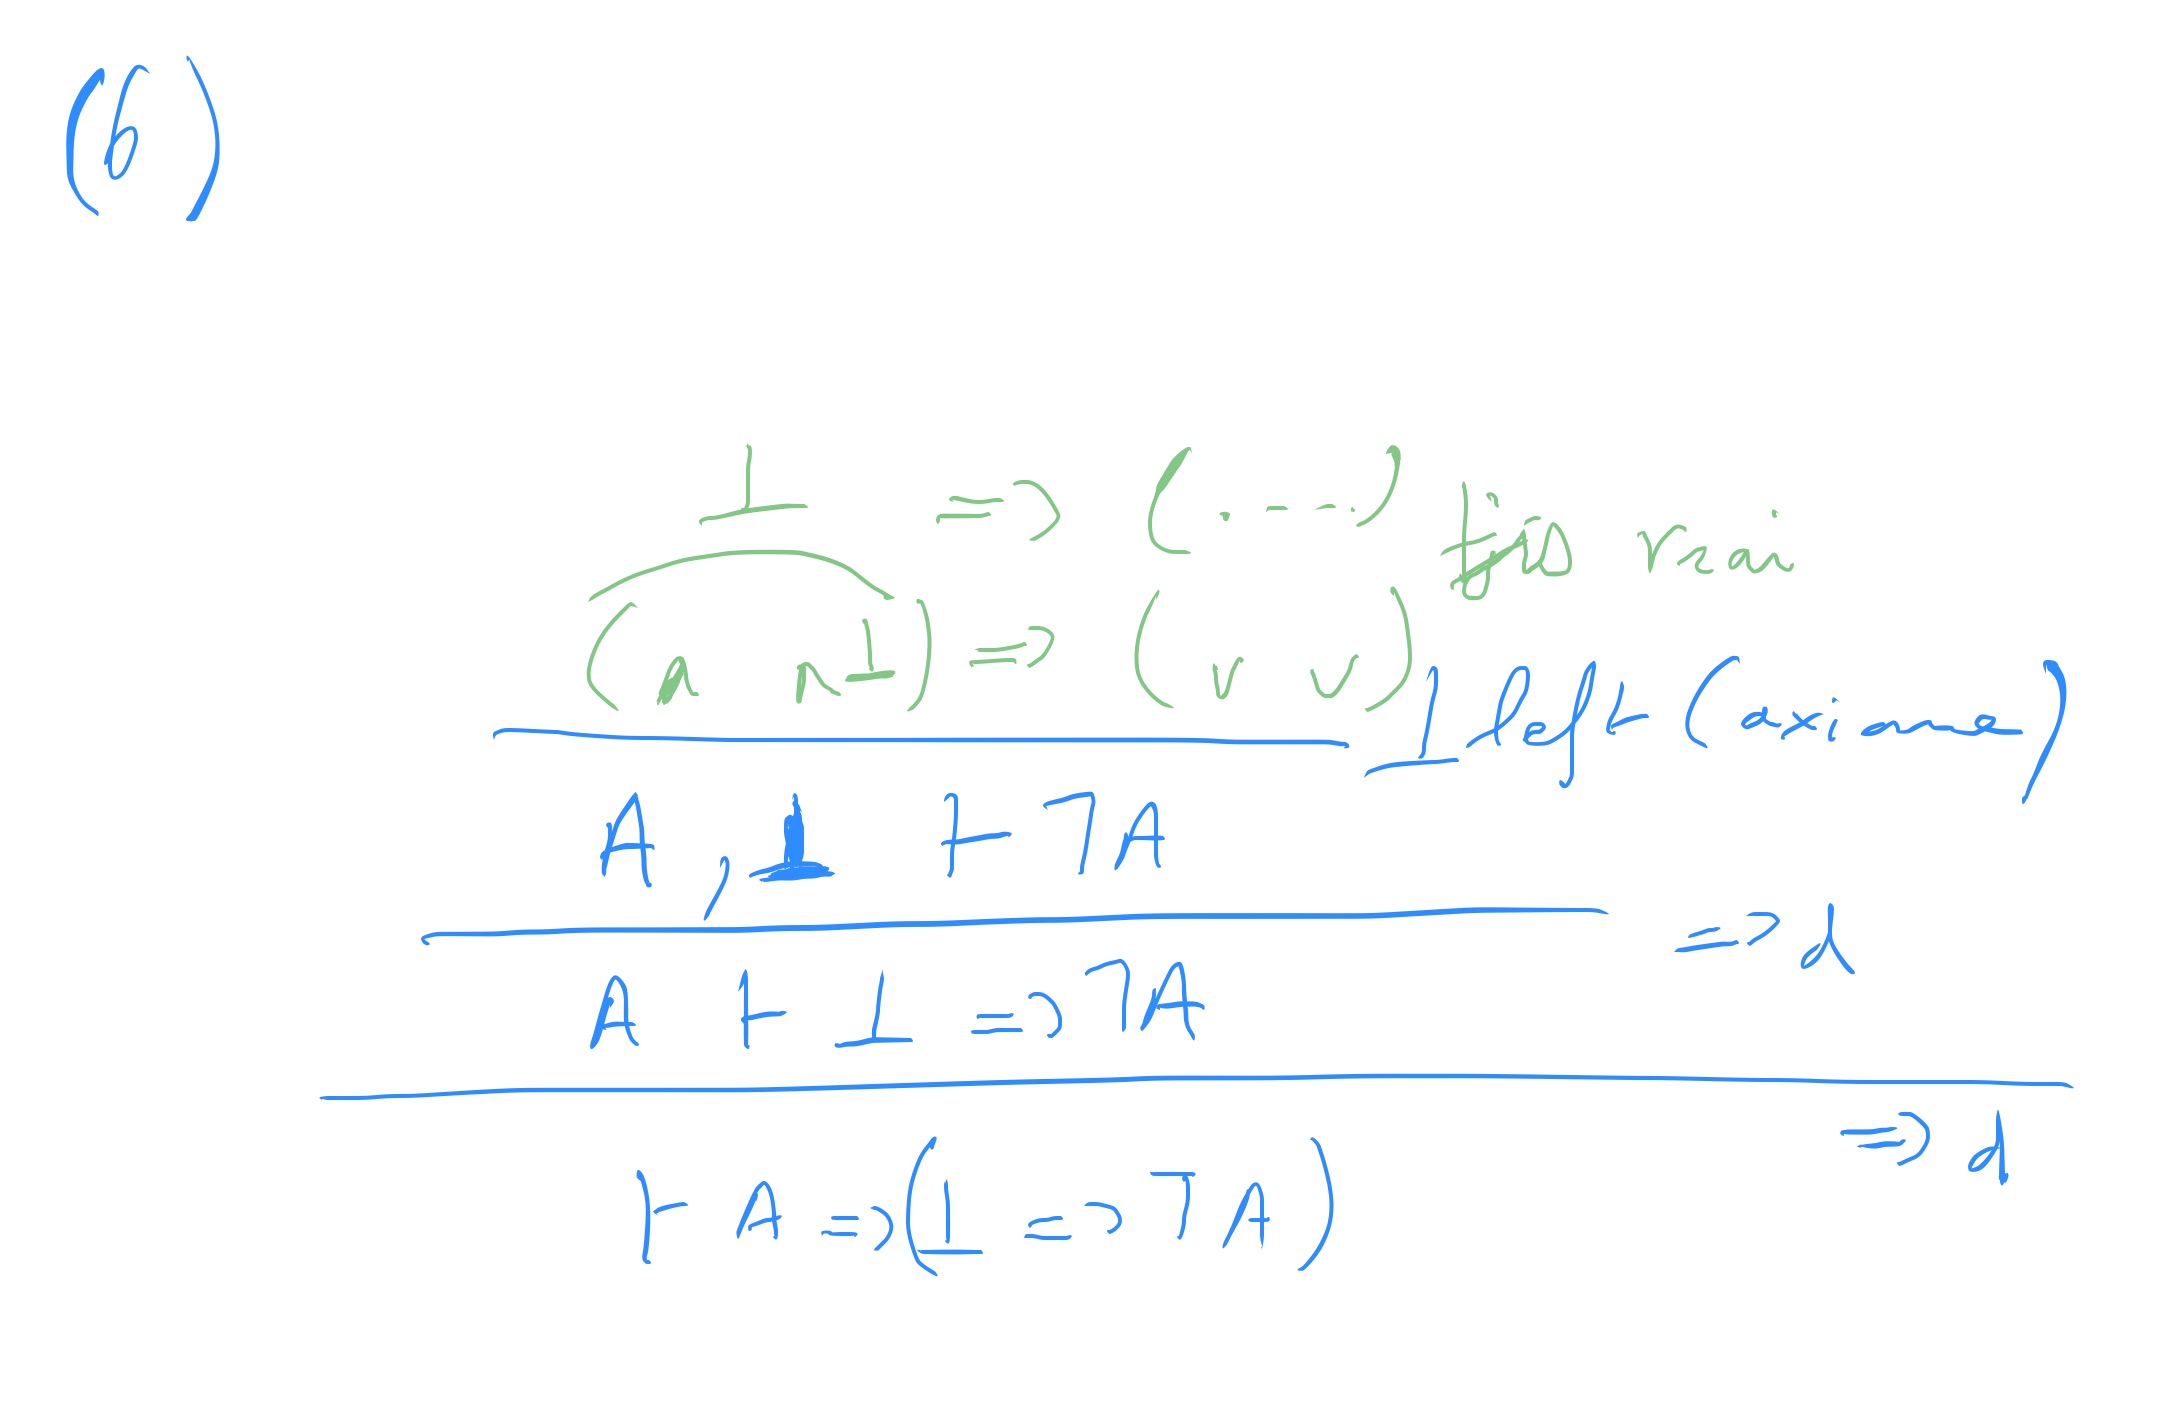 (b)
⊥ => (. - - .) tjs vrai
(∧ ∧⊥) => (∨ ∨)
⊥ left (axiome)
A, ⊥ ⊢ ¬A
=> d
A ⊢ ⊥ => ¬A
=> d
⊢ A => (⊥ => ¬A)